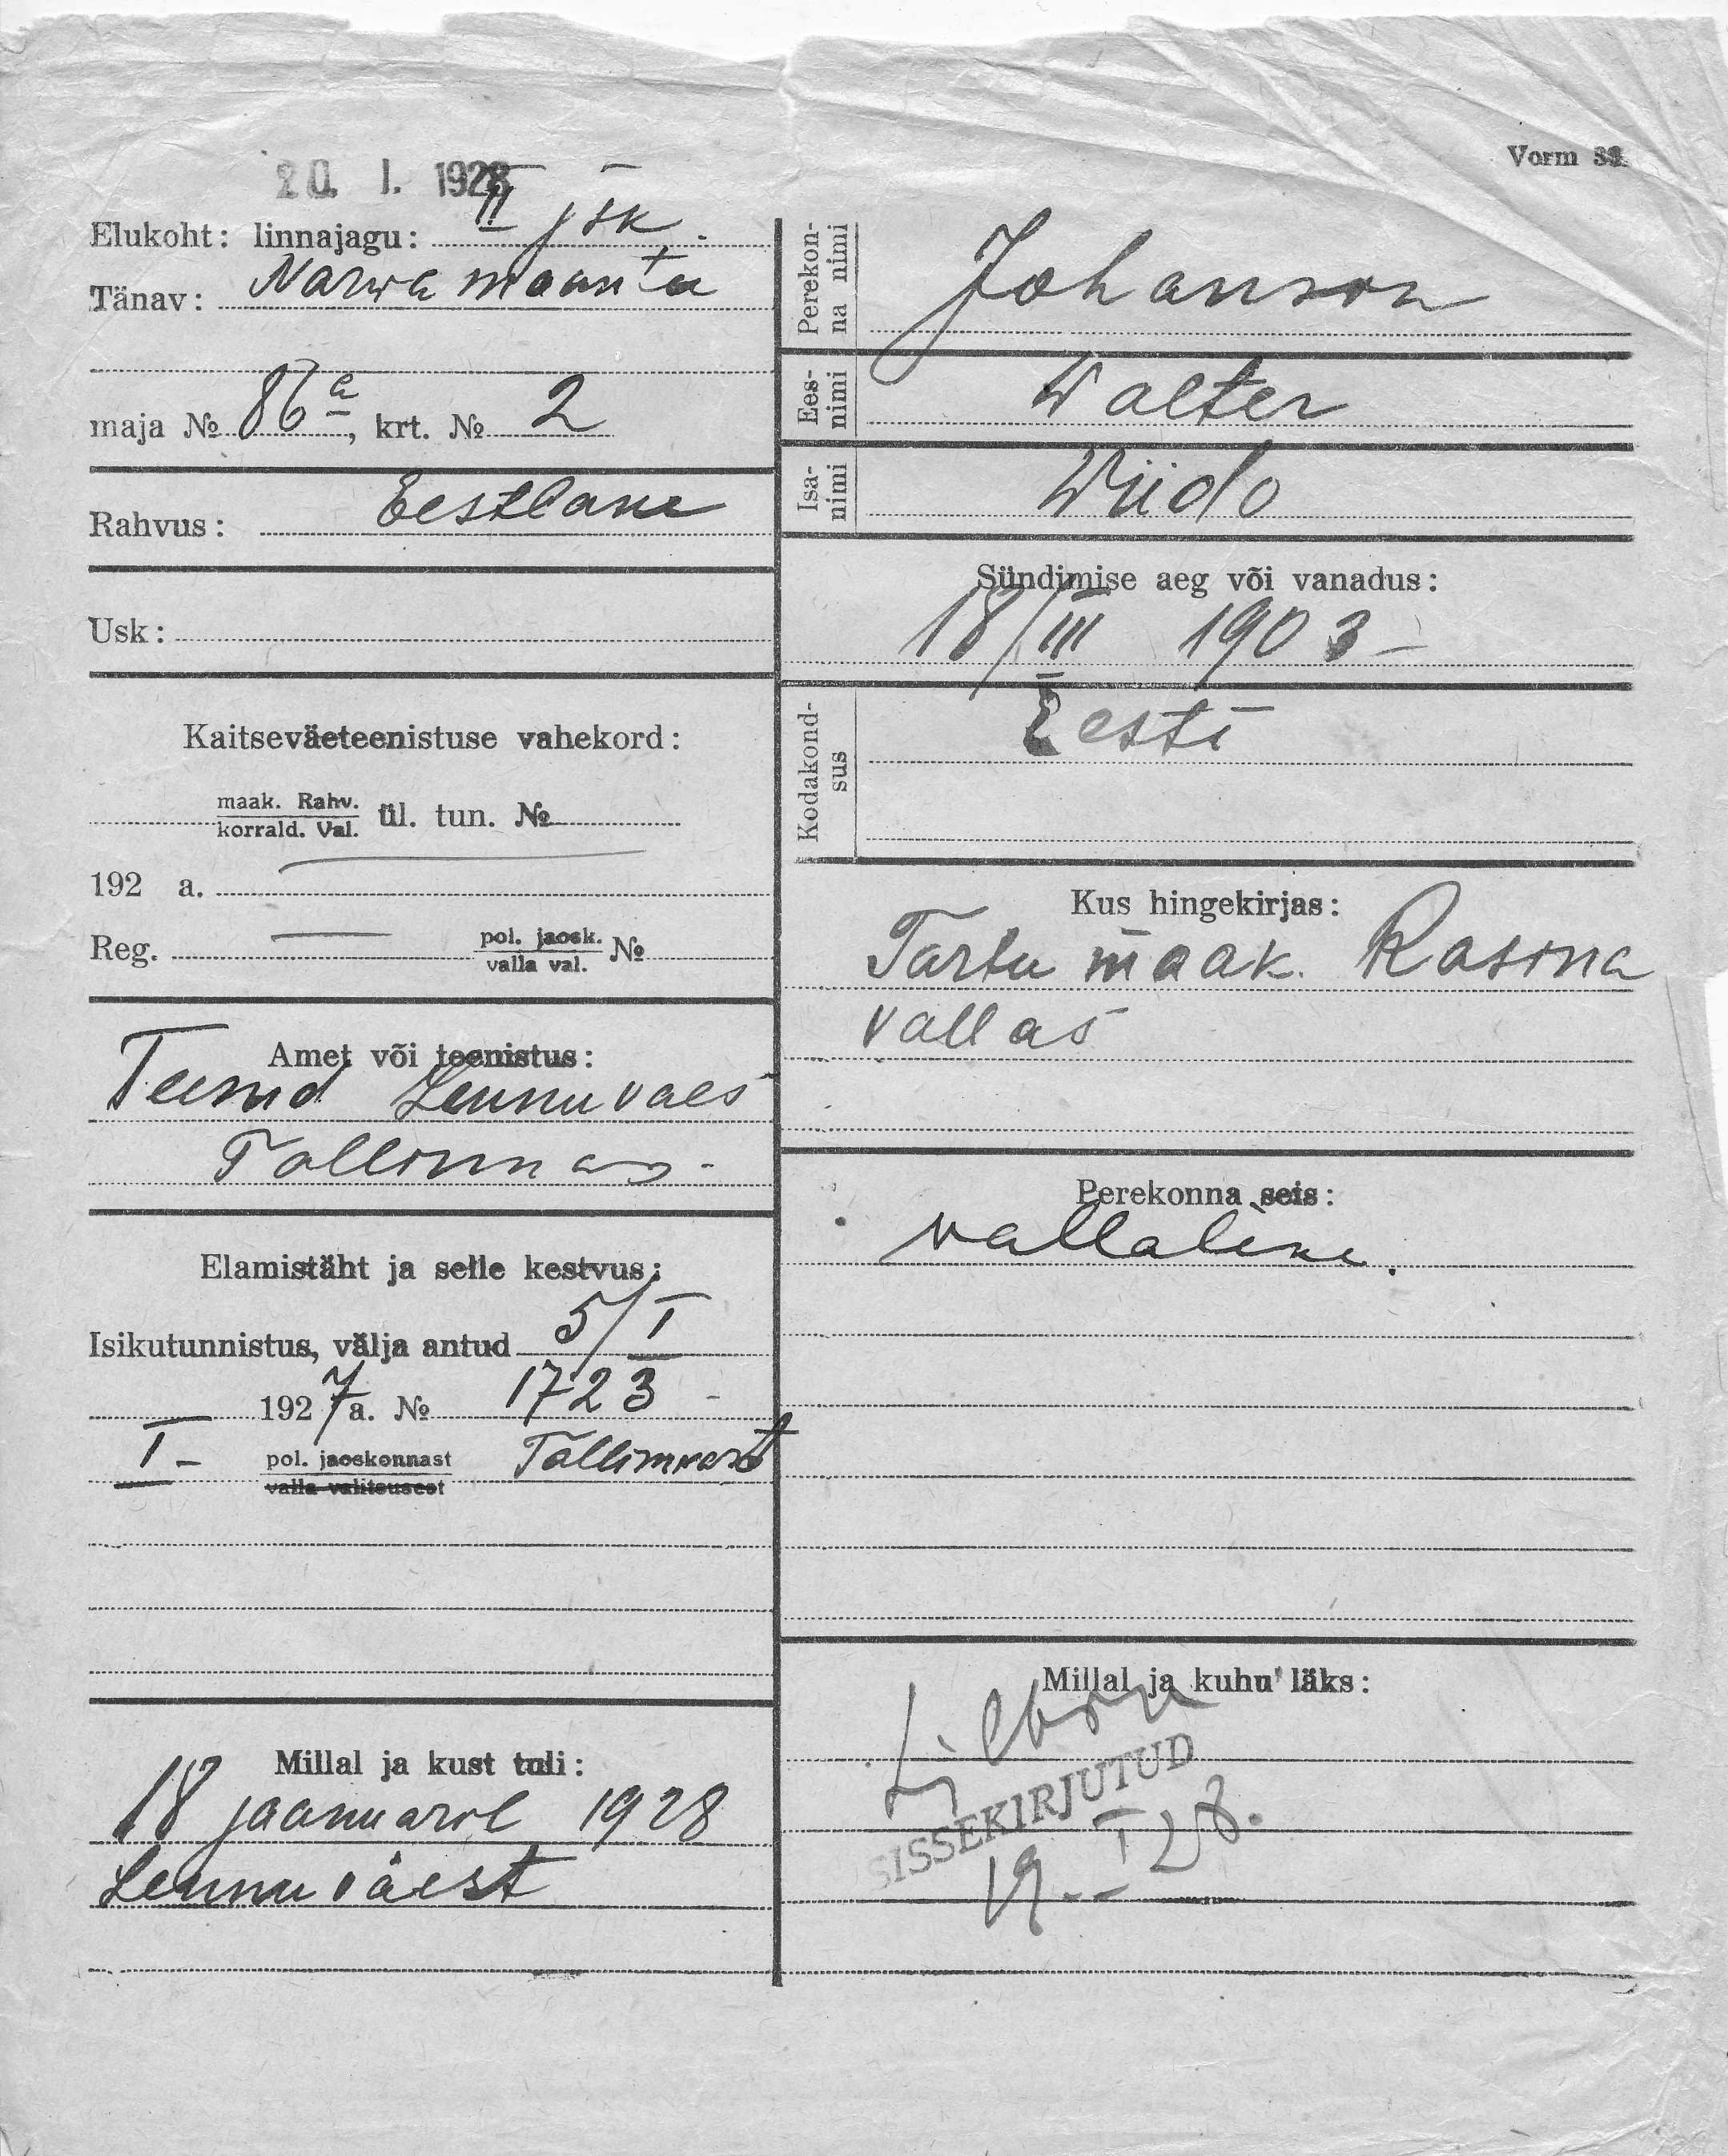 20. I. 1928
Elukoht: linnajagu: II jsk.
Tänav: Narwa maantee
maja № 86a, krt. № 2
Rahvus: Eestlane
Usk:
Kaitseväeteenistuse vahekord:
maak. Rahv.
korrald. Val. ül. tun. №
192 a.
Reg. pol. jaosk.
valla val. №
Amet või teenistus:
Teenid Lennuvaes
Tallinnas.
Elamistäht ja selle kestvus:
Isikutunnistus, välja antud 5/I
1927 a. № 1723 -
I - pol. jaoskonnast Tallinnast
valla valitsusest
Millal ja kust tuli:
18 jaanuaril 1928
Lennuväest
Vorm 33.
Perekon-
na nimi Johanson
Ees-
nimi Walter
Isa-
nimi Wiido
Sündimise aeg või vanadus:
18/III 1903 -
Kodakond-
sus Eesti
Kus hingekirjas:
Tartu maak. Rasina
vallas
Perekonna seis:
vallaline.
Millal ja kuhu läks:
SISSEKIRJUTUD
19. I 28.